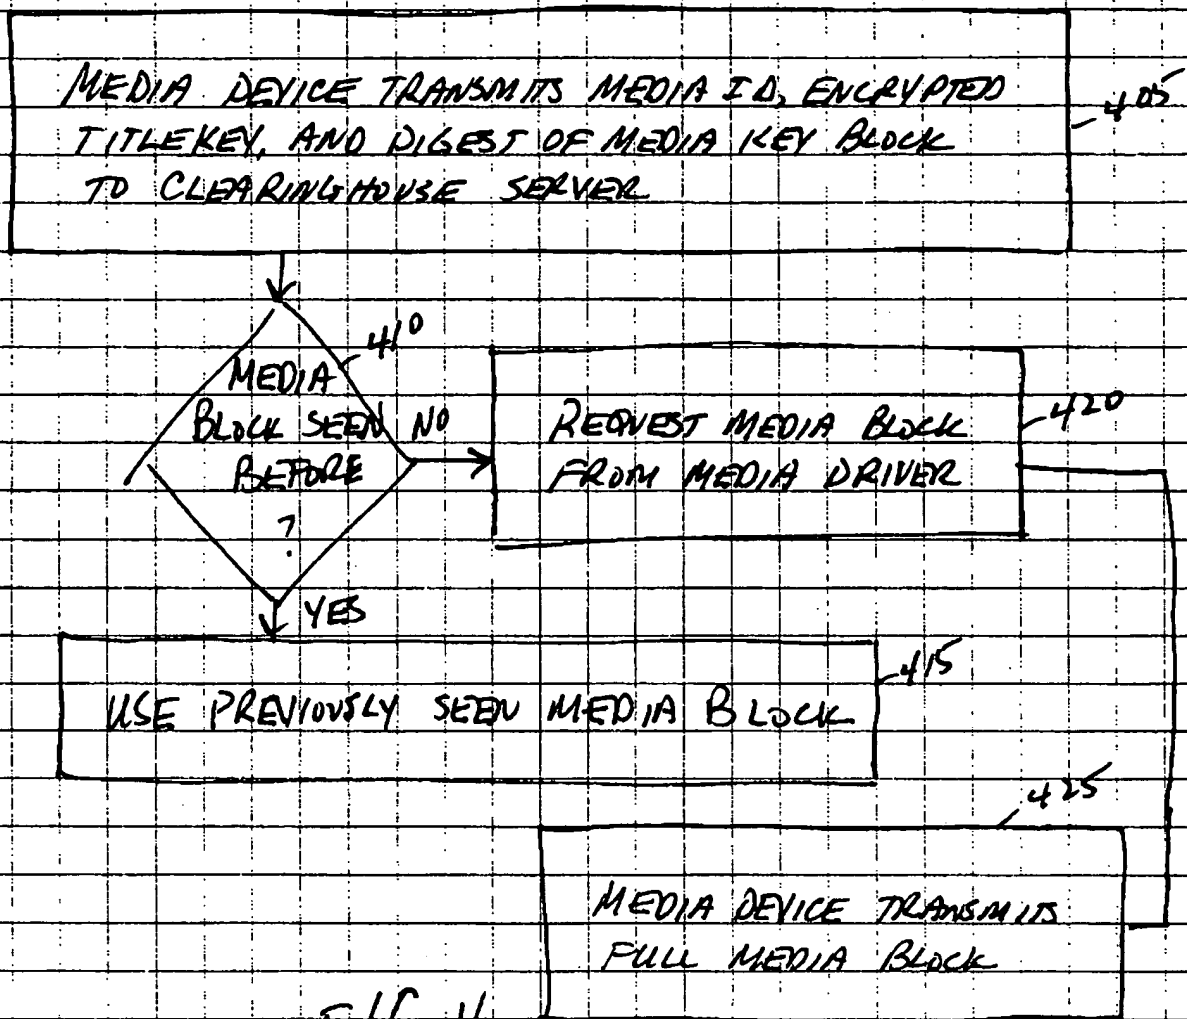 MEDIA DEVICE TRANSMITS MEDIA ID, ENCRYPTED
405
TITLEKEY, AND DIGEST OF MEDIA KEY BLOCK
TO CLEARINGHOUSE SERVER
410
MEDIA
BLOCK SEEN
BEFORE
?
NO
REQUEST MEDIA BLOCK
FROM MEDIA DRIVER
420
YES
USE PREVIOUSLY SEEN MEDIA BLOCK
415
425
MEDIA DEVICE TRANSMITS
FULL MEDIA BLOCK